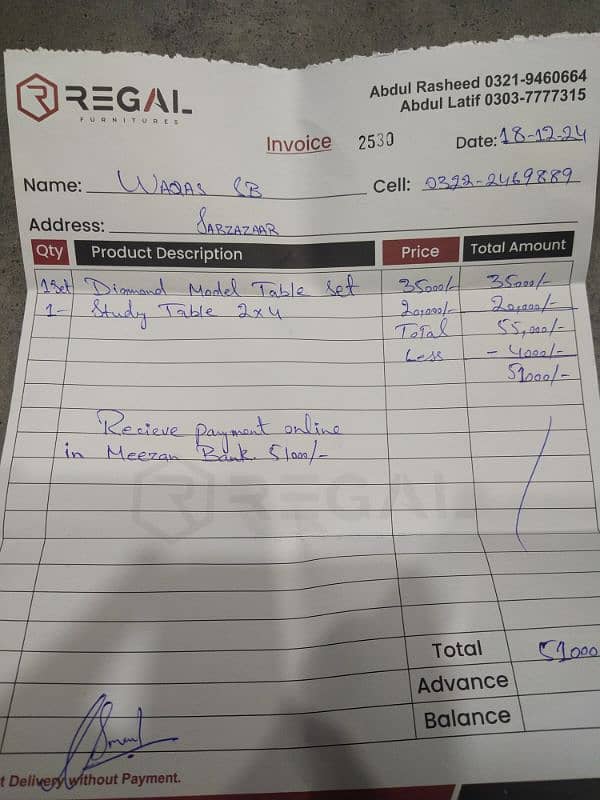 REGAL
FURNITURES
Abdul Rasheed 0321-9460664
Abdul Latif 0303-7777315
Invoice 2530 Date: 18-12-24
Name: WAQAS SB Cell: 0322-2469889
Address: SABZAZAAR
Qty Product Description Price Total Amount
1 Set Diamond Model Table Set 35000/- 35000/-
1- Study Table 2x4 20,000/- 20,000/-
Total 55,000/-
Less - 4000/-
51000/-
Recieve payment online
in Meezan Bank. 51000/-
REGAL
Total 51000
Advance
Balance
t Delivery without Payment.